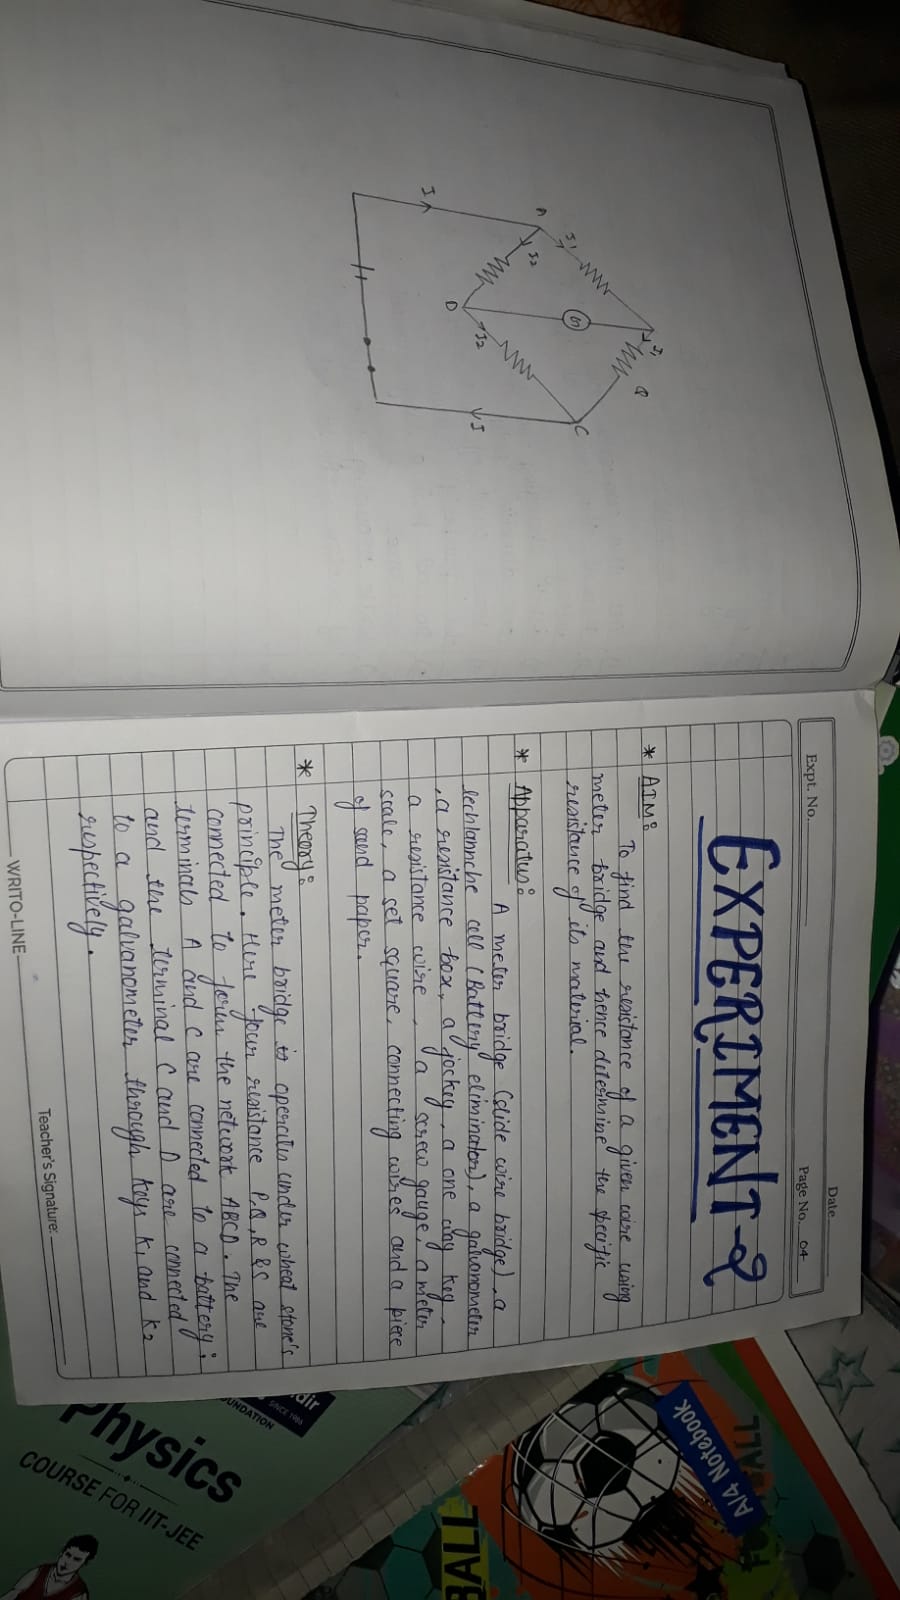 I
A
I1
I2
D
G
I1
I2
Q
C
I
Date
Expt. No.
Page No. 04
EXPERIMENT-2
* AIM:
To find the resistance of a given wire using
meter bridge and hence determine the specific
resistance of its material.
* Apparatus:
A meter bridge (slide wire bridge), a
lechlannche cell (Battery eliminator), a galvanometer
, a resistance box, a jockey, a one way key,
a resistance wire, a screw gauge, a meter
scale, a set square, connecting wires and a piece
of sand paper.
* Theory:
The meter bridge is operates under wheat stone's
principle. Here four resistance P,Q,R & S are
connected to form the network ABCD. The
terminals A and C are connected to a battery;
and the terminal C and D are connected
to a galvanometer through keys K1 and K2
respectively.
WRITO-LINE
Teacher's Signature:
SINCE 1986
FOUNDATION
Physics
COURSE FOR IIT-JEE
A/4 Notebook